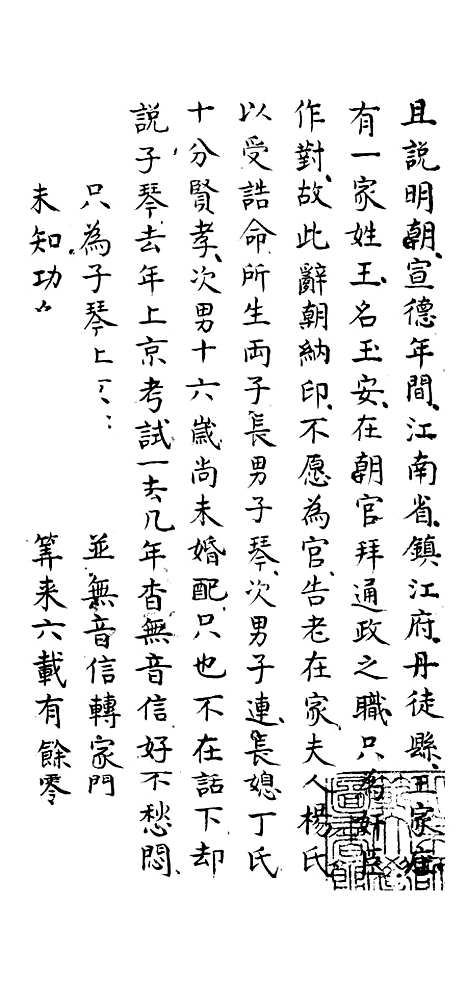 且説明朝宣德年間江南省鎮江府丹徒縣王家庄
有一家姓王名玉安在朝官拜通政之職只為奸臣
作對故此辭朝納印不愿為官告老在家夫人楊氏
以受誥命所生両子長男子琴次男子連長媳丁氏
十分賢孝次男十六歲尚未婚配只也不在話下却
說子琴去年上京考試一去几年杳無音信好不愁悶
只為子琴上京 並無音信轉家門
未知功 筭来六載有餘零